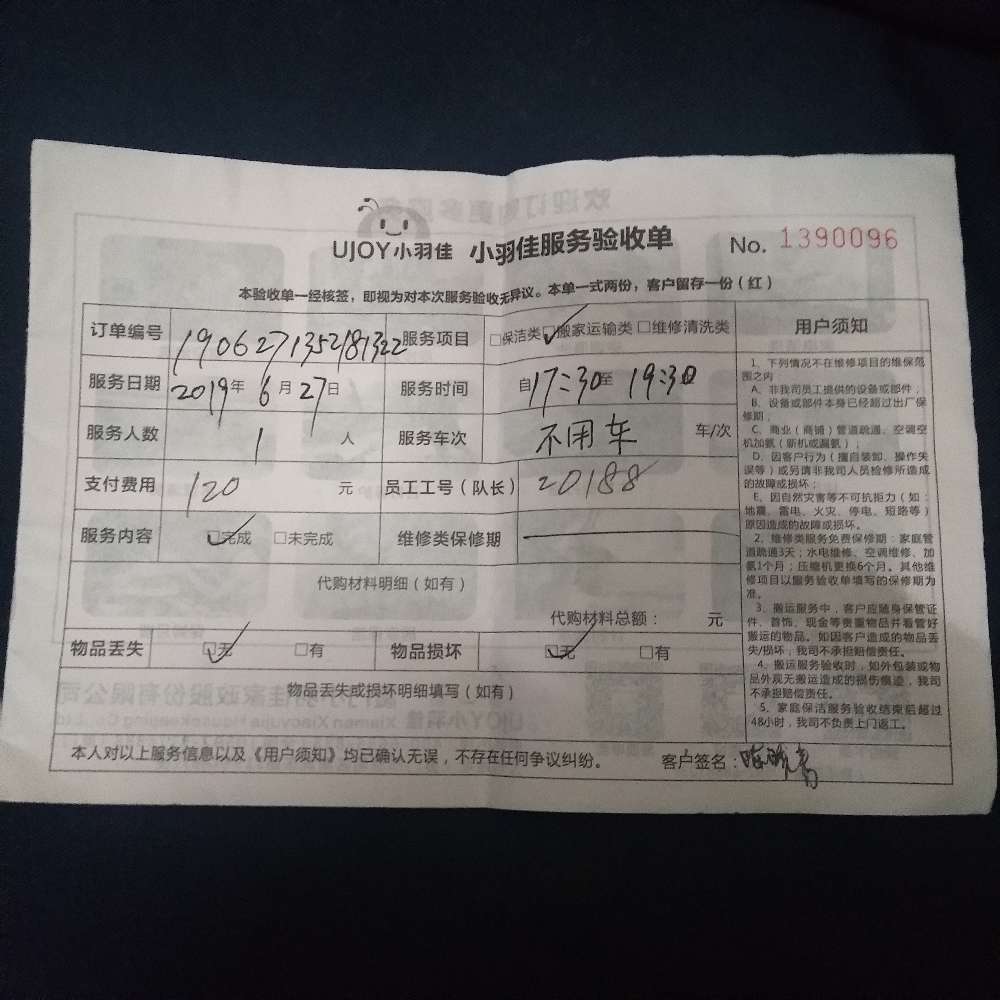 UJOY小羽佳 小羽佳服务验收单 No. 1390096
本验收单一经核签，即视为对本次服务验收无异议。本单一式两份，客户留存一份（红）
订单编号 190627135218322 服务项目 □保洁类 ☑搬家运输类 □维修清洗类
服务日期 2019年 6月27日 服务时间 自17:30至 19:30
服务人数 1 人 服务车次 不用车 车/次
支付费用 120 元 员工工号（队长） 20188
服务内容 ☑完成 □未完成 维修类保修期 —
代购材料明细（如有）
代购材料总额： 元
物品丢失 ☑无 □有 物品损坏 ☑无 □有
物品丢失或损坏明细填写（如有）
本人对以上服务信息以及《用户须知》均已确认无误，不存在任何争议纠纷。 客户签名：
用户须知
1、下列情况不在维修项目的维保范
围之内：
A、非我司员工提供的设备或部件；
B、设备或部件本身已经超过出厂保
修期；
C、商业（商铺）管道疏通、空调空
机加氨（新机或漏氨）；
D、因客户行为（擅自装卸、操作失
误等）或另请非我司人员检修所造成
的故障或损坏；
E、因自然灾害等不可抗拒力（如：
地震、雷电、火灾、停电、短路等）
原因造成的故障或损坏。
2、维修类服务免费保修期：家庭管
道疏通3天；水电维修、空调维修、加
氨1个月；压缩机更换6个月。其他维
修项目以服务验收单填写的保修期为
准。
3、搬运服务中，客户应随身保管证
件、首饰、现金等贵重物品并看管好
搬运的物品。如因客户造成的物品丢
失/损坏，我司不承担赔偿责任。
4、搬运服务验收时，如外包装或物
品外观无搬运造成的损伤痕迹，我司
不承担赔偿责任。
5、家庭保洁服务验收结束后超过
48小时，我司不负责上门返工。